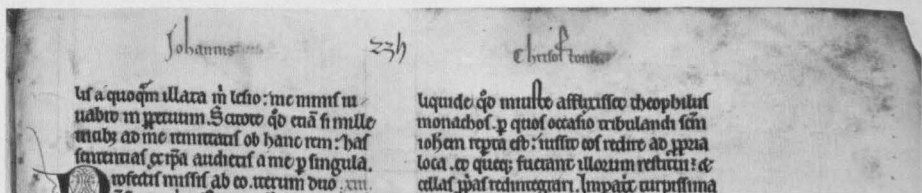 Johannis
234
Chrisostomi
lis a quoq̄m illata m̄ lesio: me minus iu
uabit in ꝑpetuum. Scitote qđ etiā si mille
ad me remittatis ob hanc rem: has
sententias ex ip̄a audietis a me ꝑ singula.
Profectis missis ab eo. iterum duo .xiii.
liquide qđ iniuste afflixisset theophilus
monachos. ꝑ quos occasio tribulandi sc̄m
ioh̄em reꝑta est: iussit eos redire ad ꝓpria
loca. et queq; fuerant illorum restitui: &
cellas ip̄as redintegrari. turpissima